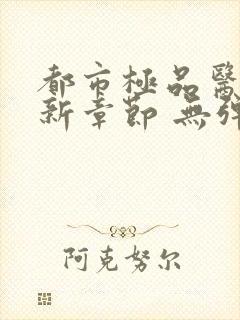 都市極品醫
新章節 無彈
阿克努尔